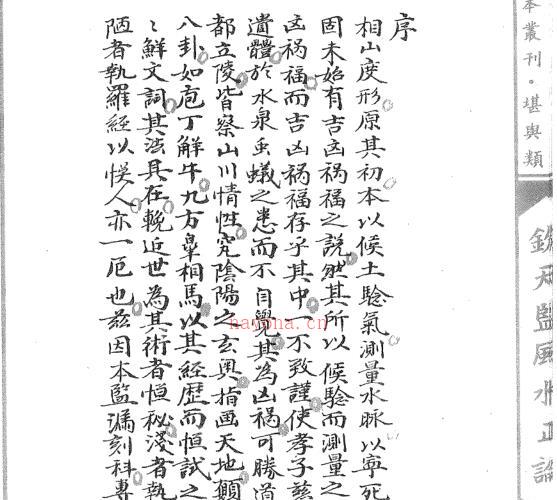 序
相山度形原其初本以候土驗氣測量水脉以寧死
固未始有吉凶禍福之説然其所以候驗而測量之
凶禍福而吉凶禍福存乎其中一不致謹使孝子慈
遺體於水泉虫蟻之患而不自覺其為凶禍可勝道
都立陵皆察山川情性究陰陽之玄奥指画天地顛
八卦如庖丁解牛九方臯相馬以其經歴而恒試之
〻鮮文詞其法具在輓近世為其術者恒秘淺者執
陋者執羅經以悮人亦一厄也兹因本監漏刻科專
本叢刊·堪輿類
欽天監風水正論
hayona.cn